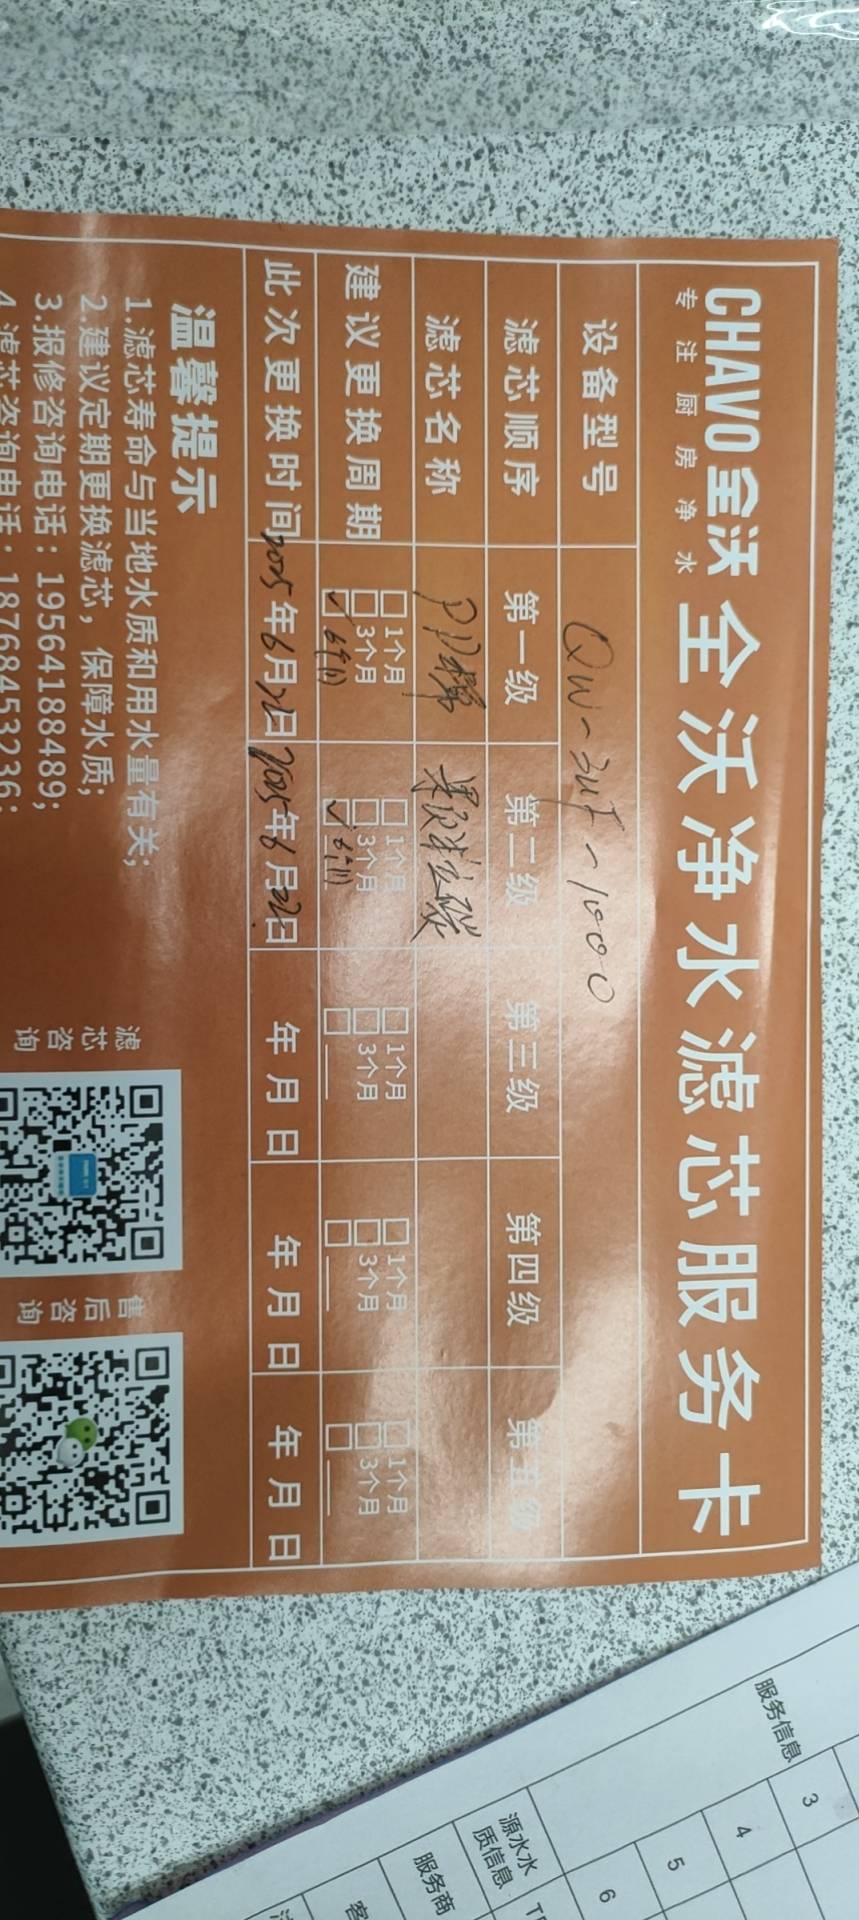 CHAVO全沃 全沃净水滤芯服务卡
专注厨房净水
设备型号 QW-3UF-1000
滤芯顺序 第一级 第二级 第三级 第四级 第五级
滤芯名称 PP棉 颗粒活性炭
建议更换周期 □1个月 □3个月 ☑6个月 □1个月 □3个月 ☑6个月 □1个月 □3个月 □___ □1个月 □3个月 □___ □1个月 □3个月 □___
此次更换时间 2025年6月22日 2025年6月22日 年月日 年月日 年月日
温馨提示
1.滤芯寿命与当地水质和用水量有关;
2.建议定期更换滤芯,保障水质;
3.报修咨询电话:19564188489;
4.滤芯咨询电话:18768453236;
滤芯咨询
售后咨询
服务信息
3
4
5
6
源水水质信息
服务商